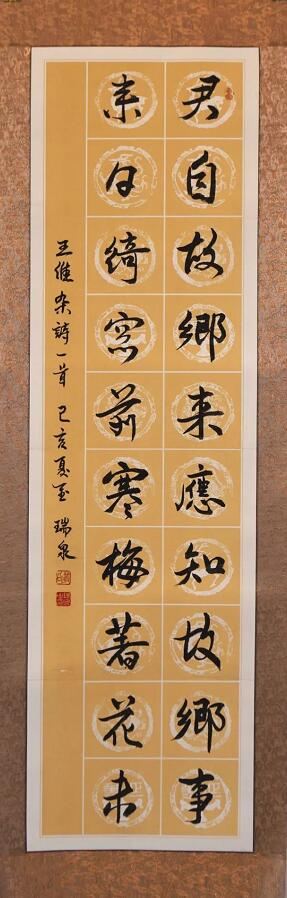 君自故鄉来應知故鄉事
来日綺窓前寒梅著花未
王維杂詩一首 己亥夏至 瑞泉